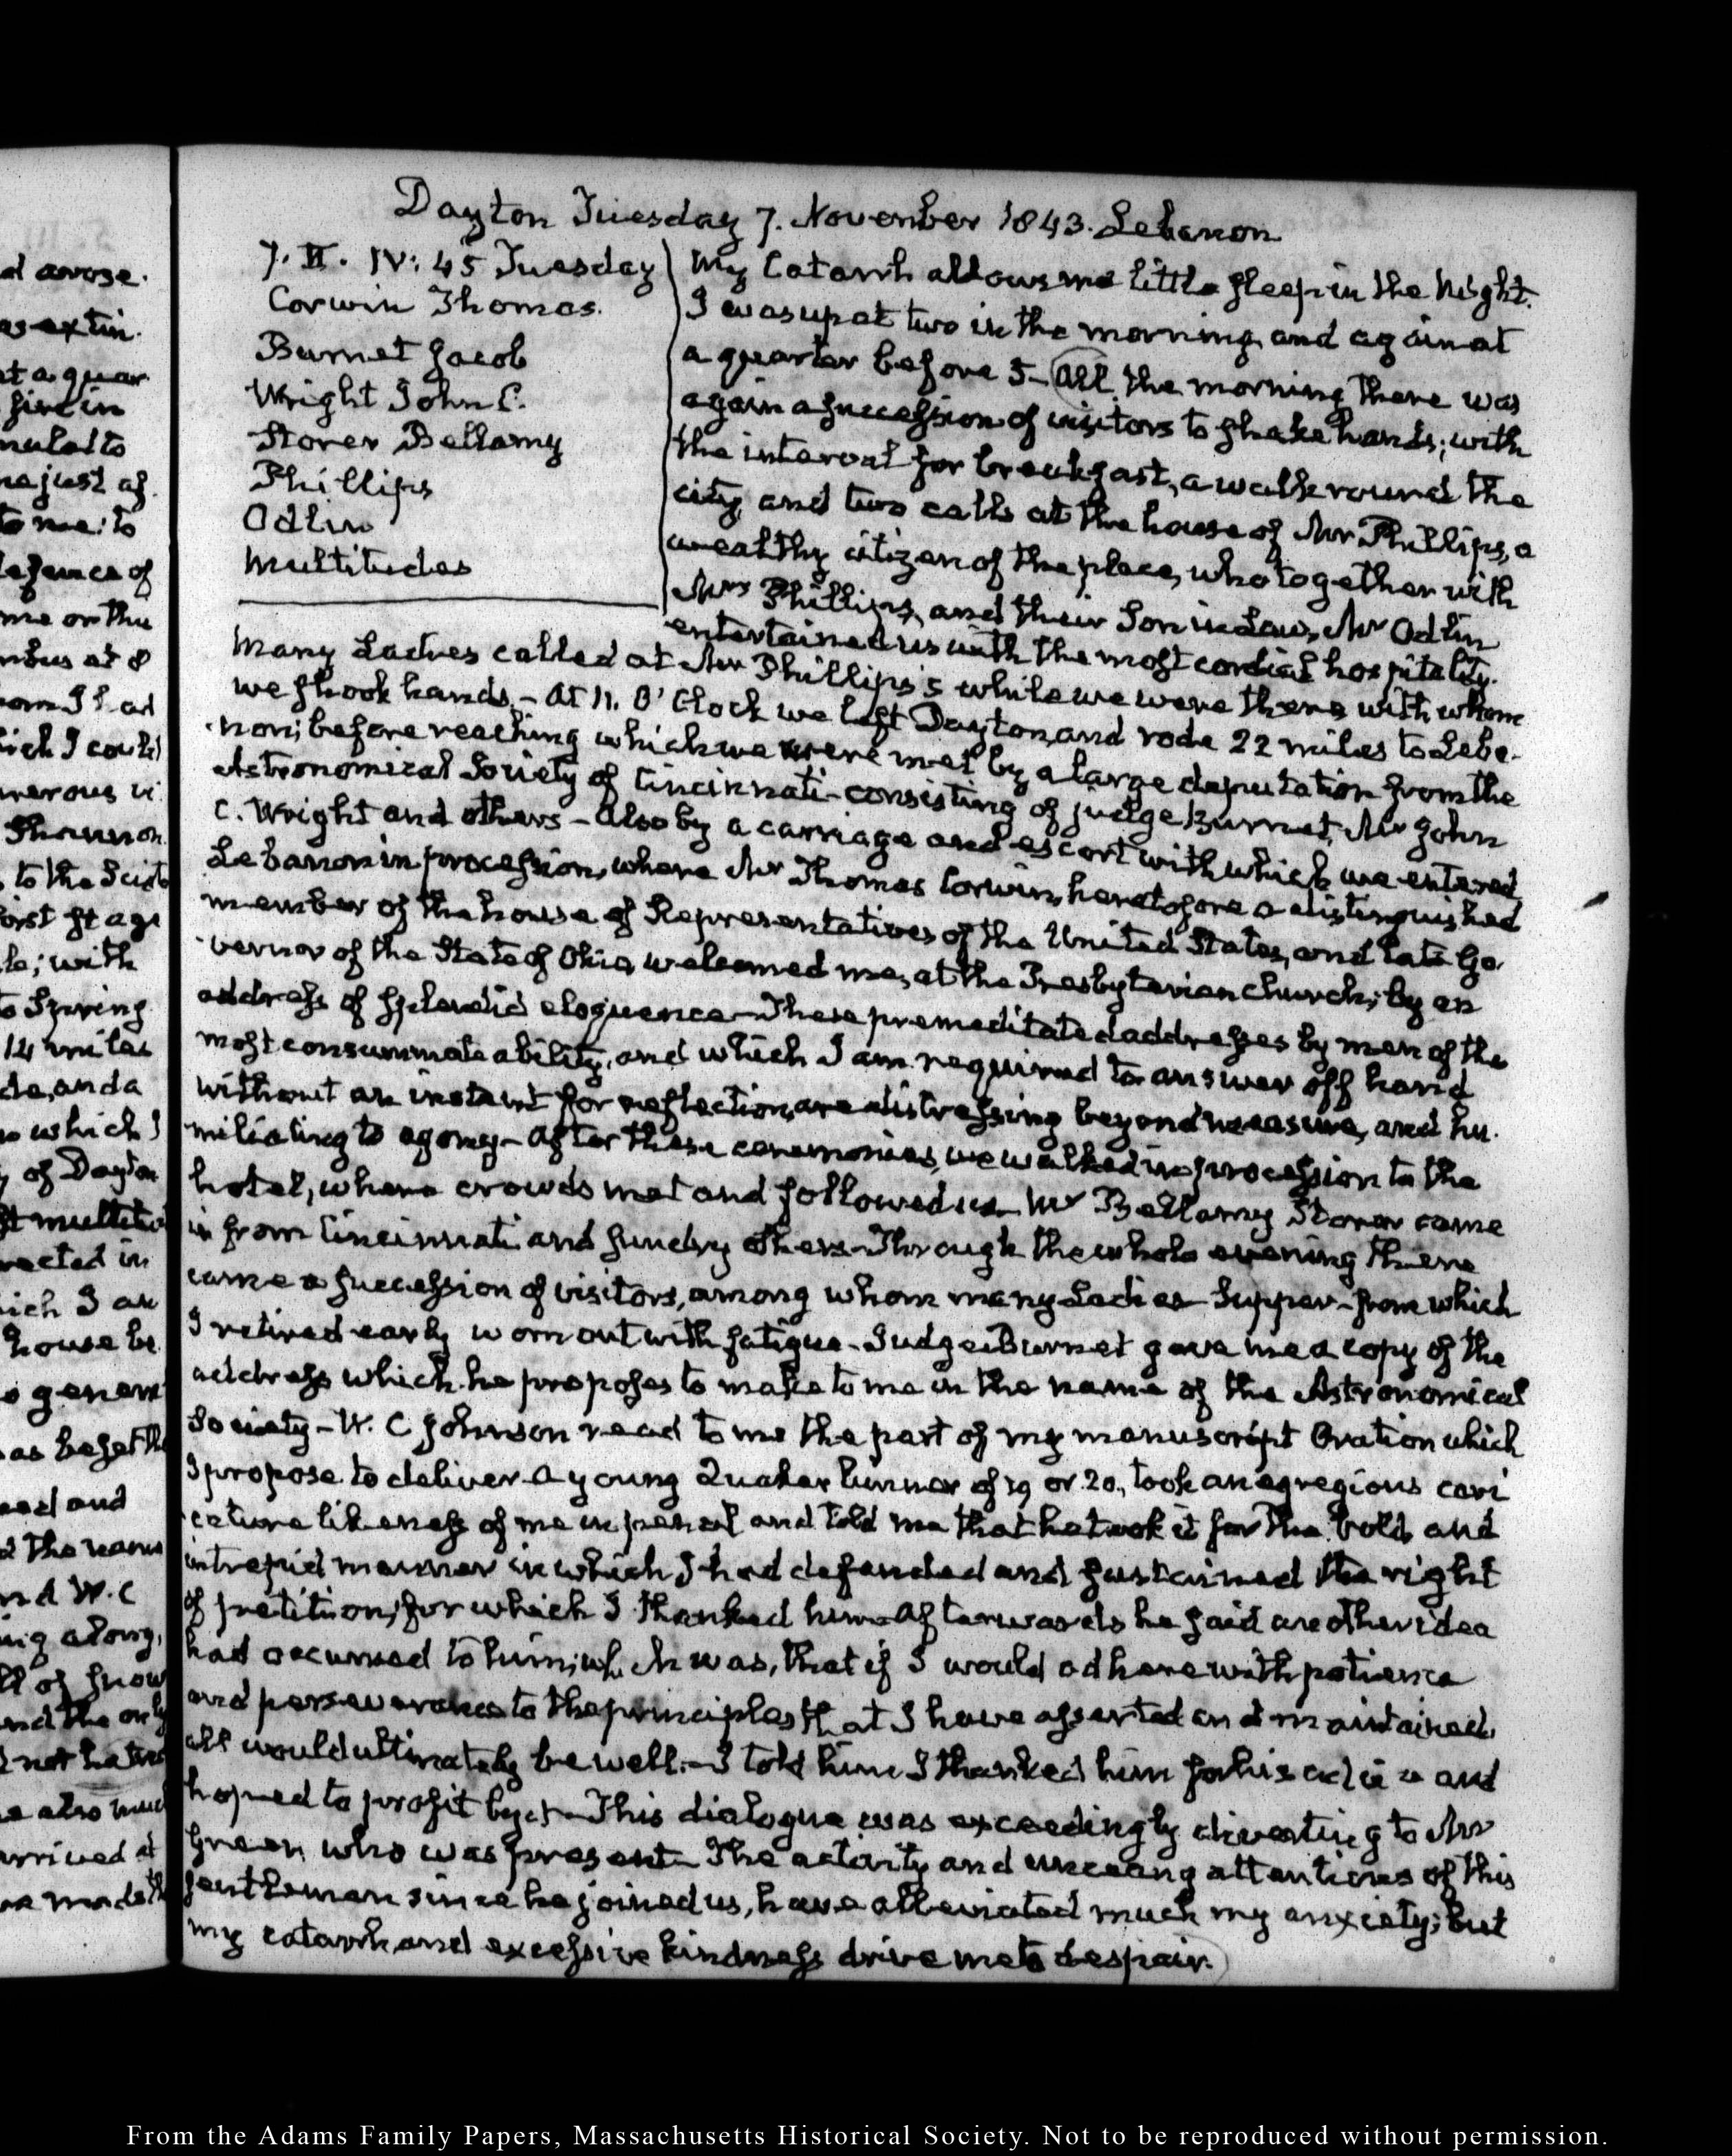 Dayton Tuesday 7. November 1843. Lebanon
7. II. IV: 45 Tuesday
Corwin Thomas.
Burnet Jacob
Wright John C.
Storer Bellamy
Phillips
Odlin
Multitudes
My Catarrh allows me little sleep in the Night.
I was up at two in the morning, and again at
a quarter before 5 - All the morning there was
again a succession of visitors to shake hands; with
the interval for breakfast, a walk round the
city, and two calls at the house of Mr Phillips, a
wealthy citizen of the place, who together with
Mrs Phillips, and their Son in Law, Mr Odlin
entertained us with the most cordial hospitality.
Many Ladies called at Mr Phillips's while we were there with whom
we shook hands - At 11. O'Clock we left Dayton, and rode 22 miles to Leba-
non; before reaching which we were met by a large deputation from the
Astronomical Society of Cincinnati - consisting of judge Burnet, Mr John
C. Wright and others - also by a carriage and escort with which we entered
Lebanon in procession, where Mr Thomas Corwin, heretofore a distinguished
member of the house of Representatives of the United States, and late Go-
vernor of the State of Ohio, welcomed me, at the Presbyterian church; by an
address of splendid eloquence - These premeditated addresses by men of the
most consummate ability, and which I am required to answer off hand
without an instant for reflection, are distressing beyond measure, and hu-
miliating to agony - After these ceremonies, we walked in procession to the
hotel, where crowds met and followed us - Mr Bellamy Storer came
in from Cincinnati and sundry others - Through the whole evening there
came a succession of visitors, among whom many Ladies - Supper - from which
I retired early worn out with fatigue - Judge Burnet gave me a copy of the
address which he proposes to make to me in the name of the Astronomical
Society - W. C Johnson read to me the part of my manuscript Oration which
I propose to deliver - A young Quaker of 19 or 20, took an egregious cari
cature likeness of me in pencil and told me that he took it for the bold and
intrepid manner in which I had defended and sustained the right
of petition; for which I thanked him - Afterwards he said another idea
had occurred to him; which was, that if I would adhere with patience
and perseverance to the principles that I have asserted and maintained,
all would ultimately be well - I told him I thanked him for his advice and
hoped to profit by it - This dialogue was exceedingly diverting to Mr
Green, who was present - The activity and unceasing attentions of this
gentleman since he joined us, have alleviated much my anxiety; but
my catarrh and excessive kindness drive me to despair.
From the Adams Family Papers, Massachusetts Historical Society. Not to be reproduced without permission.